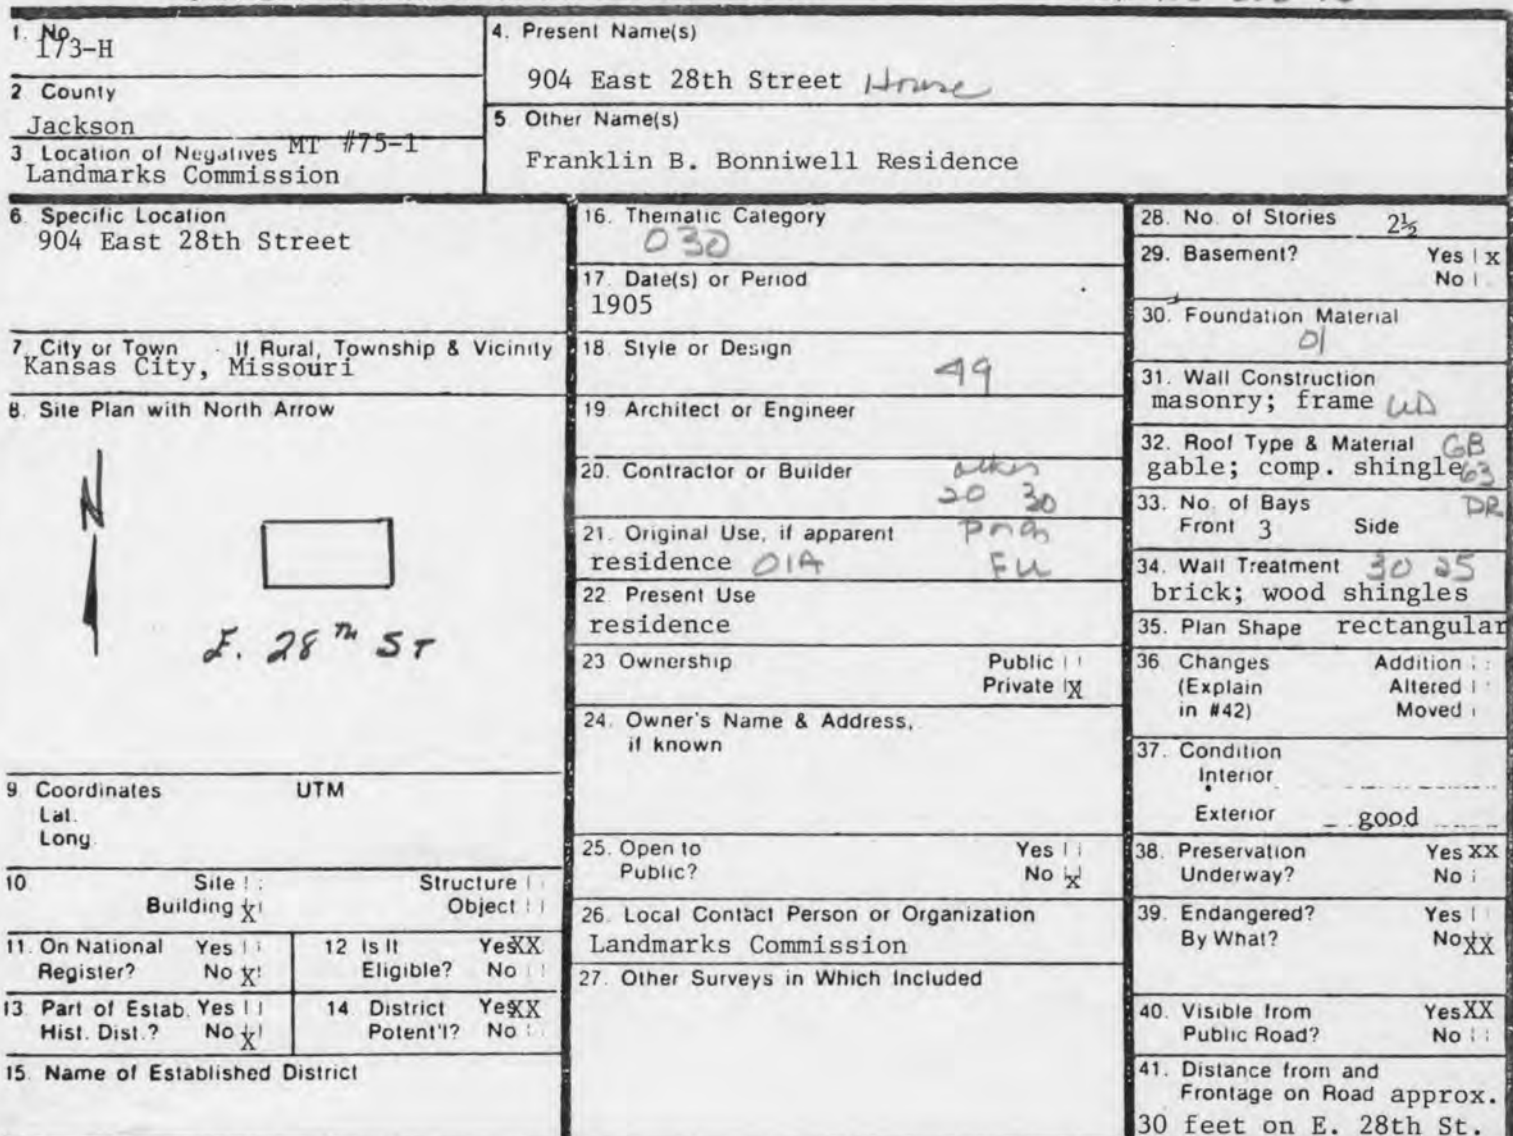 1. No.
173-H
2 County
Jackson
3 Location of Negatives MT #75-1
Landmarks Commission
4. Present Name(s)
904 East 28th Street House
5. Other Name(s)
Franklin B. Bonniwell Residence
6. Specific Location
904 East 28th Street
7. City or Town If Rural, Township & Vicinity
Kansas City, Missouri
8. Site Plan with North Arrow
N
E. 28TH ST
9. Coordinates UTM
Lat.
Long.
10. Site
Structure
Building X
Object
11. On National Register? Yes
No X
12 Is It Eligible? Yes XX
No
13. Part of Estab. Hist. Dist.? Yes
No X
14. District Potent'l? Yes XX
No
15. Name of Established District
16. Thematic Category
030
17. Date(s) or Period
1905
18. Style or Design
49
19. Architect or Engineer
20. Contractor or Builder
20 30
21. Original Use, if apparent
residence 01A
FU
22. Present Use
residence
23 Ownership Public
Private X
24. Owner's Name & Address,
if known
25. Open to Yes
Public? No X
26. Local Contact Person or Organization
Landmarks Commission
27. Other Surveys in Which Included
28. No. of Stories 2½
29. Basement? Yes x
No
30. Foundation Material
01
31. Wall Construction
masonry; frame WD
32. Roof Type & Material GB
gable; comp. shingle 63
33. No. of Bays DR
Front 3 Side
34. Wall Treatment 30 25
brick; wood shingles
35. Plan Shape rectangular
36. Changes Addition
(Explain Altered
in #42) Moved
37. Condition
Interior
Exterior good
38. Preservation Yes XX
Underway? No
39. Endangered? Yes
By What? No XX
40. Visible from Yes XX
Public Road? No
41. Distance from and
Frontage on Road approx.
30 feet on E. 28th St.